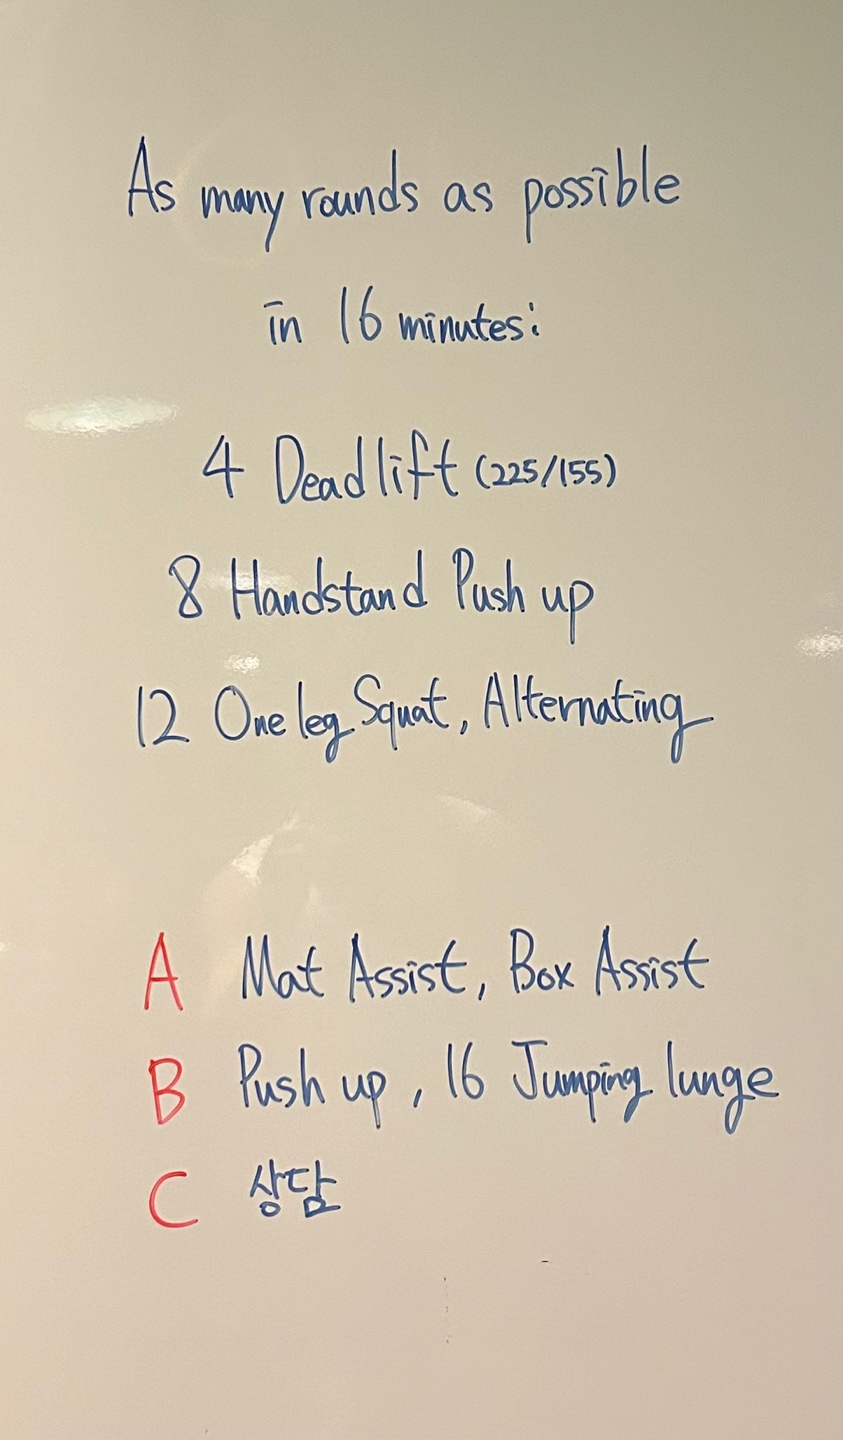 As many rounds as possible
in 16 minutes:
4 Deadlift (225/155)
8 Handstand Push up
12 One leg Squat, Alternating
A Mat Assist, Box Assist
B Push up, 16 Jumping lunge
C 상담